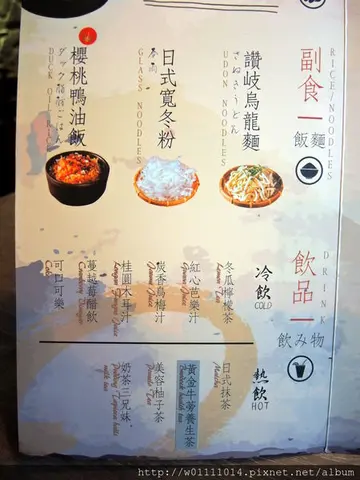 RICE/NOODLES
副食
飯麵
讚岐烏龍麵
さぬきうどん
UDON NOODLES
日式寬冬粉
春雨
GLASS NOODLES
櫻桃鴨油飯
DUCK OIL RICE
DRINK
飲品
飲み物
冷飲
COLD
冬瓜檸檬茶
紅心芭樂汁
炭香烏梅汁
桂圓木耳汁
蔓越莓醋飲
可口可樂
熱飲
HOT
日式抹茶
Matcha
黃金牛蒡養生茶
美容柚子茶
Pomelo Tea
奶茶三兄妹
http://w01111014.pixnet.net/album